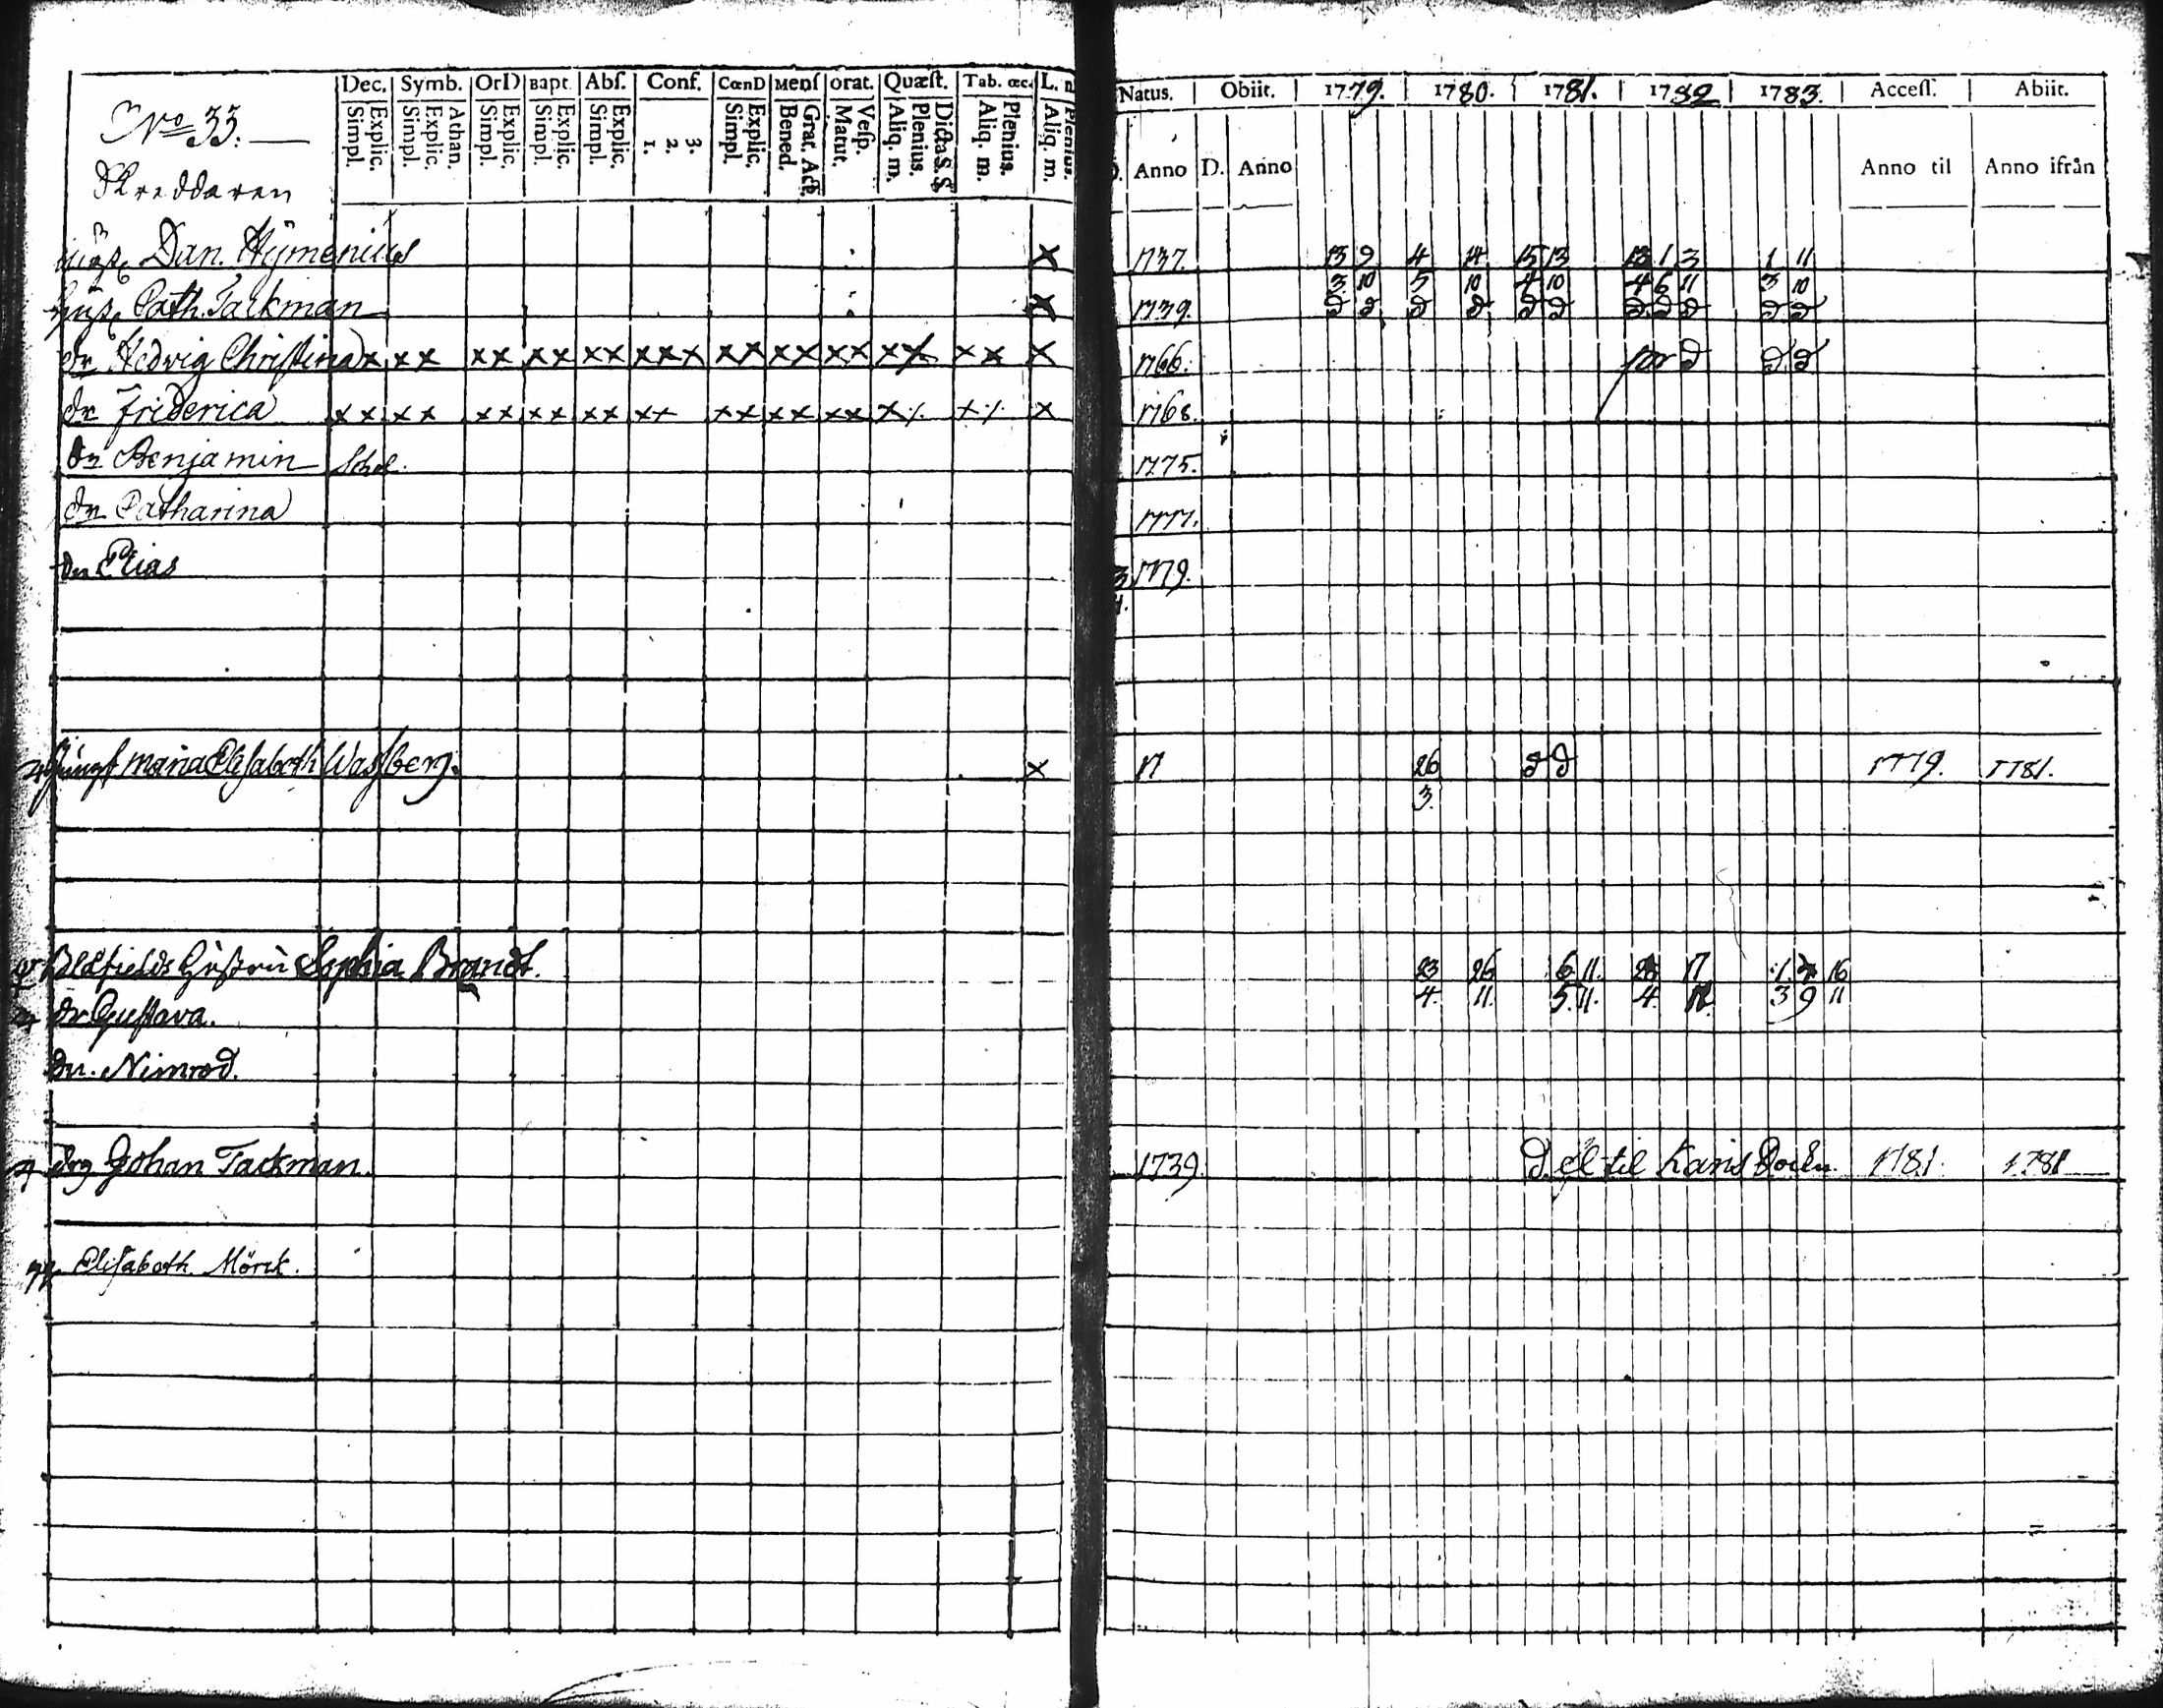 Dec. Symb. OrD Bapt. Abſ. Conf. CœnD Menſ orat. Quæſt. Tab. œc. L. Natus. Obiit. 1779. 1780. 1781. 1782 1783. Acceſſ. Abiit.
Simpl. Explic. Simpl. Explic. Athan. Simpl. Explic. Simpl. Explic. Simpl. Explic. 1. 2. 3. Simpl. Explic. Bened. Grat. Act. Matut. Veſp. Aliq. m. Plenius. Dicta S. S. Aliq. m. Plenius. Aliq. m. Plenius. Anno D. Anno Anno til Anno ifrån
No 33.
Skreddaren
Dan. Hymenius x 1737. 13 9 4 14 15 13 1 3 1 11
3 10 5 10 4 10 4 6 11 3 10
Cath. Tackman x 1739. d d d d d d d d d d d
dr Hedvig Chriſtina x x x x x x x x x x x x x x x x x x x x x x x x 1766. d d d
dr Friderica x x x x x x x x x x x x x x x x x x x x 1768.
Benjamin Schol. 1775.
Catharina 1777.
Elias 1779.
Maria Eliſabeth Waſberg. x 17 26 d d 1779. 1781.
3.
Sophia Brandt. 23 26 6 11. 17 1 16
4. 11. 5. 11. 4. 3 9 11
dr Guſtava.
Nimrod.
Johan Tackman. 1739. til Karis 1781. 1781
Eliſabeth Mörck.